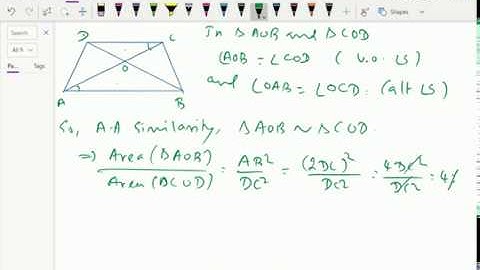 Search
Shapes
All N
Pa...
D
C
O
A
B
In ΔAOB and ΔCOD
∠AOB = ∠COD ( V.O. ∠S)
and ∠OAB = ∠OCD (alt ∠S)
So, A.A Similarity, ΔAOB ~ ΔCOD
⇒ Area (ΔAOB) / Area (ΔCOD) = AB² / DC² = (2DC)² / DC² = 4DC² / DC² = 4/